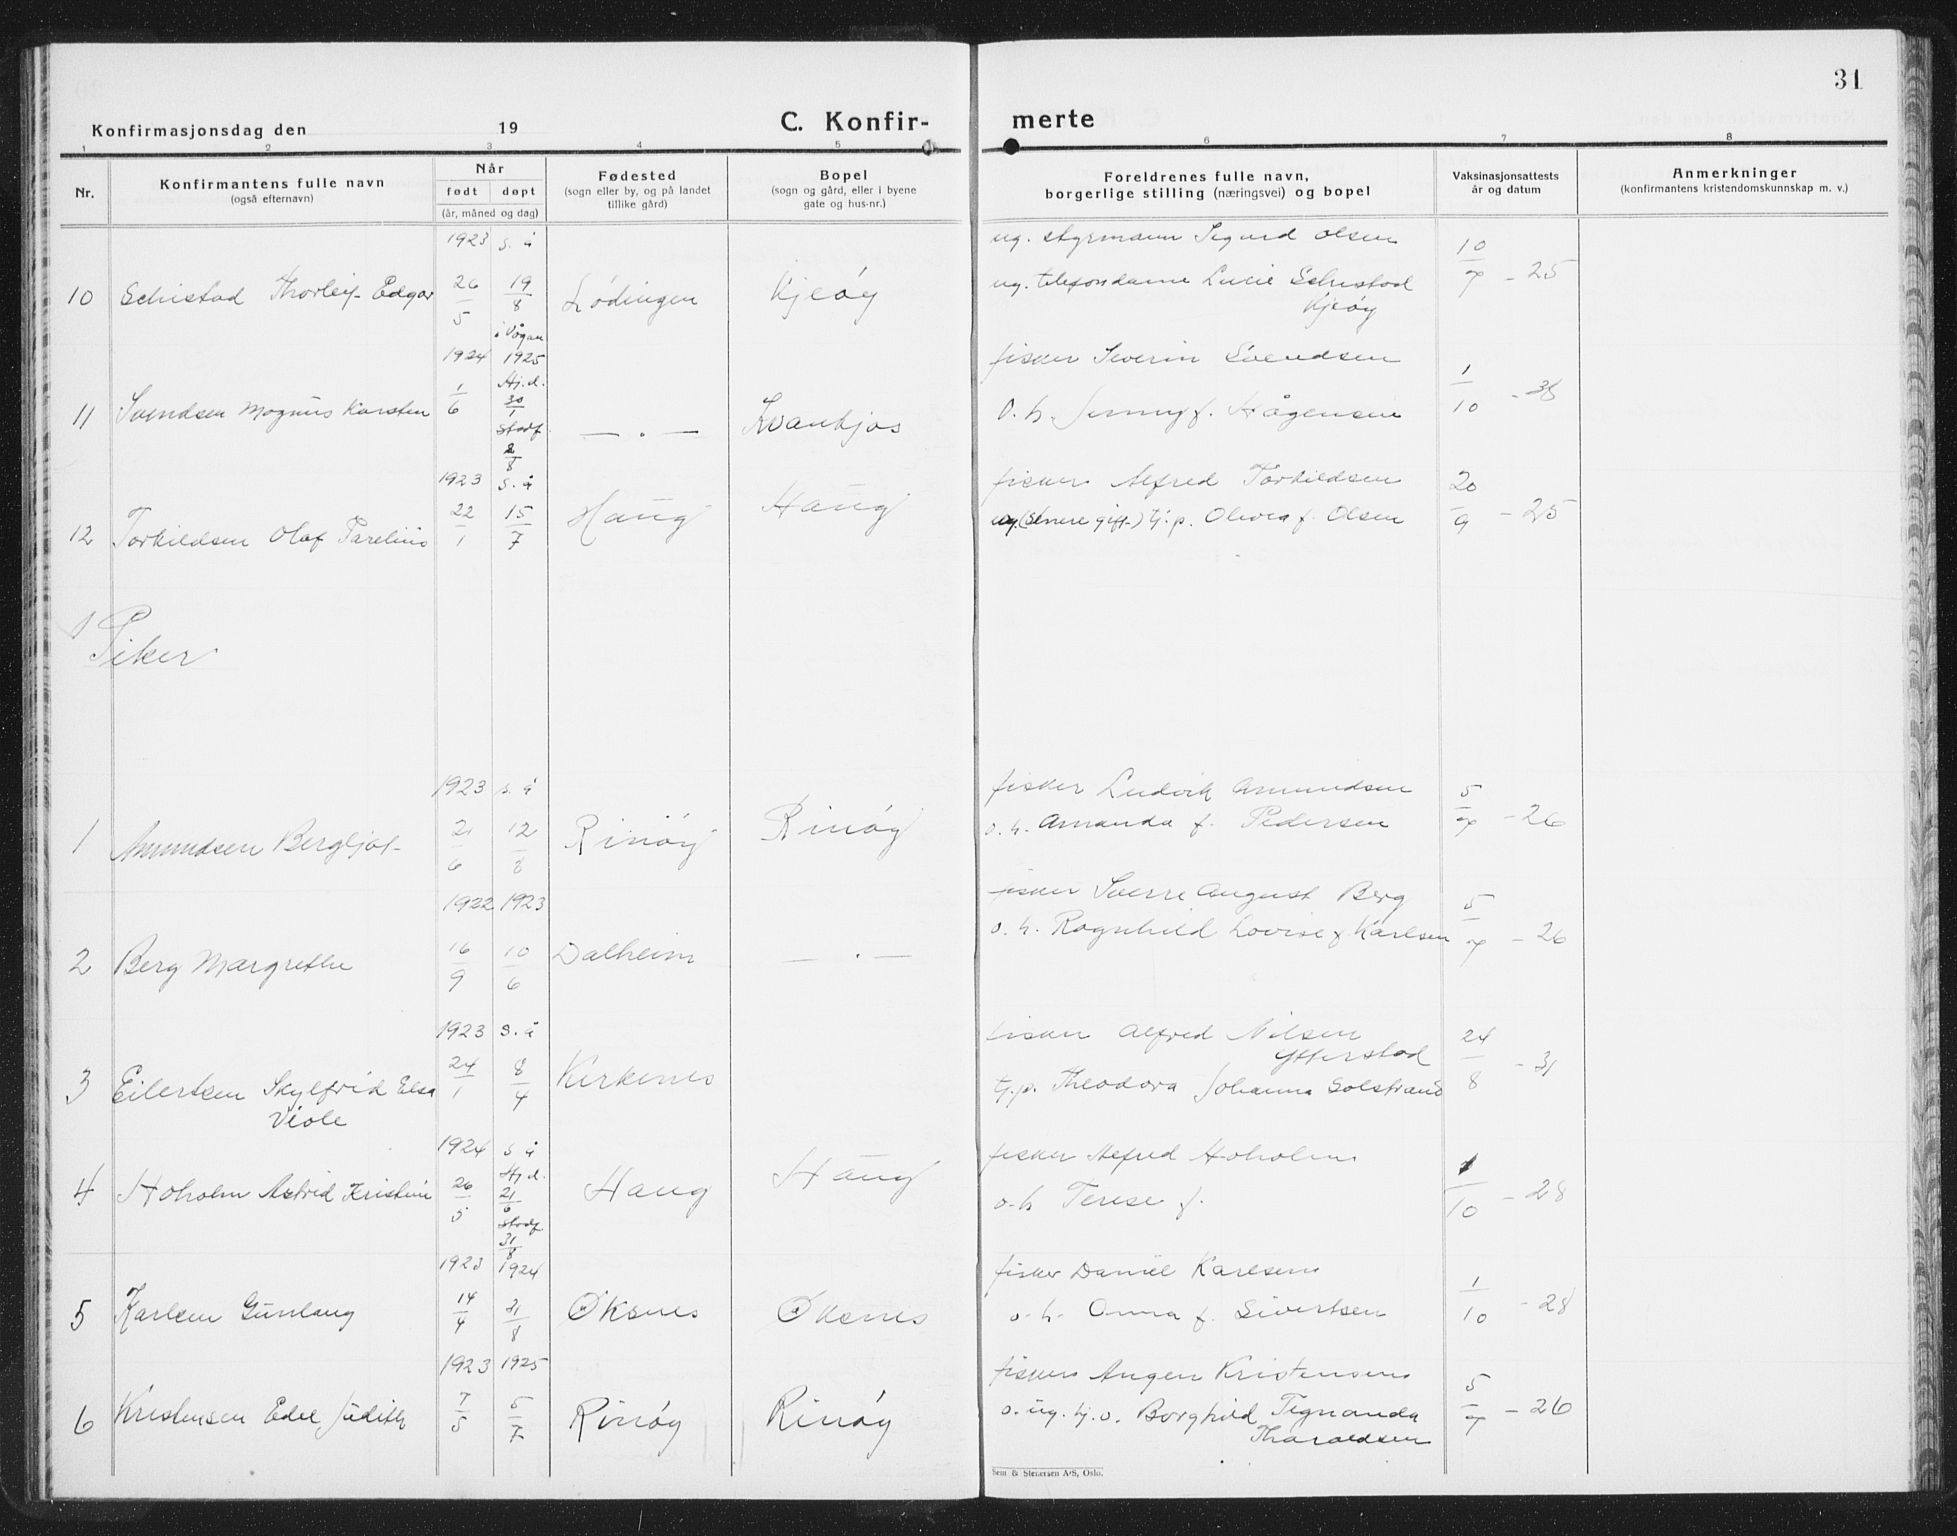 31
Konfirmasjonsdag den 19
C. Konfir-
merte
1 2 3 4 5 6 7 8
Nr.
Konfirmantens fulle navn
(også efternavn)
Når
født døpt
(år, måned og dag)
Fødested
(sogn eller by, og på landet
tillike gård)
Bopel
(sogn og gård, eller i byene
gate og hus-nr.)
Foreldrenes fulle navn,
borgerlige stilling (næringsvei) og bopel
Vaksinasjonsattests
år og datum
Anmerkninger
(konfirmantens kristendomskunnskap m. v.)
1923 s. å ug. styrmann Sigurd Olsen
10 Schistad Thorleif Edgar 26/5 19/8 Lødingen Kjeøy ug. telefondame Lucie Schistad 10/7 - 25
i Vågan Kjeøy
1924 1925 fisker Severin Svendsen
11 Svendsen Magnus Karsten 1/6 Hj. d. 30/1 — . — Kvankjos o. h. Jenny f. Hågensen 1/10 - 38
Stadf 2/8
1923 s. å fisker Alfred Torkildsen
12 Torkildsen Olaf Parelius 22/1 15/7 Haug Haug ug. (senere gift) tj. p. Olivea f. Olsen 20/9 - 25
Piker
1923 s. å fisker Ludvik Amundsen
1 Amundsen Bergljot 21/6 12/8 Rinøy Rinøy o. h. Amanda f. Pedersen 5/7 - 26
1922 1923 fisker Sverre August Berg
2 Berg Margrethe 16/9 10/6 Dalheim — . — o. h. Ragnhild Lovise f. Karlsen 5/7 - 26
1923 s. å fisker Alfred Nilsen
Ytterstad
3 Eilertsen Skylfrid Elsa 24/1 8/4 Kirkenes tj. p. Theodora Johanna Solstrand 24/8 - 31
Viole
1924 s å fisker Alfred Hoholm
4 Hoholm Astrid Kristine 26/5 Hj. d. 21/6 Haug Haug o. h Terese f. 1/10 - 28
Stadf 31/8
1923 1924 fisker Daniel Karlsen
5 Karlsen Gunlaug 14/4 31/8 Øksnes Øksnes o. h. Anna f. Sivertsen 1/10 - 28
1923 1925 fisker Angen Kristensen
6 Kristensen Edel Judith 7/5 5/7 Rinøy Rinøy o. ug. tj. p. Borghild Tignanda 5/7 - 26
Tharaldsen
Sem & Stenersen A/S, Oslo.